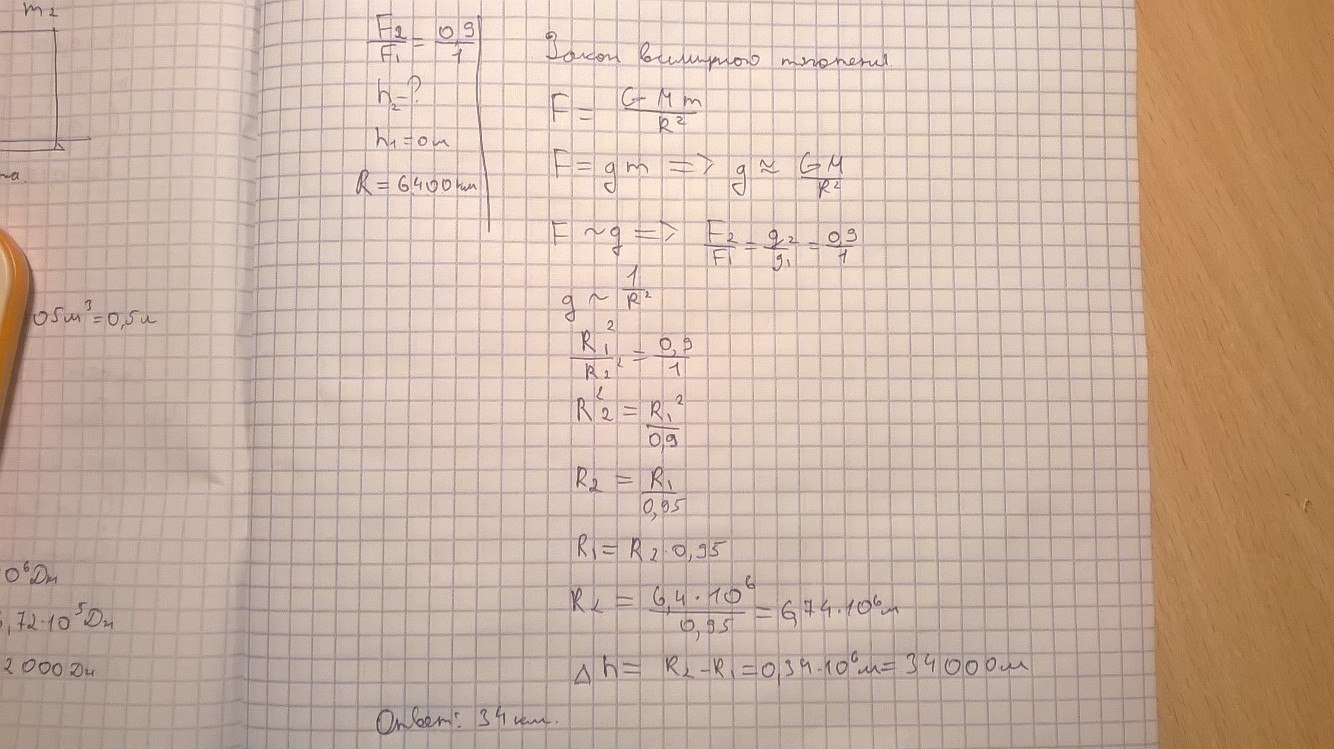 m₂
05м³=0,5л
0⁶Дж
,72·10⁵Дж
2000Дж
F₂/F₁ = 0,9/1
h₂-?
h₁=0м
R = 6400км
Закон всемирного тяготения
F = GMm/R²
F = gm => g ≈ GM/R²
F ~ g => F₂/F₁ = g₂/g₁ = 0,9/1
g ~ 1/R²
R₁²/R₂² = 0,9/1
R₂² = R₁²/0,9
R₂ = R₁/0,95
R₁ = R₂·0,95
R₂ = 6,4·10⁶/0,95 = 6,74·10⁶м
Δh = R₂-R₁=0,34·10⁶м=34000м
Ответ: 34км.